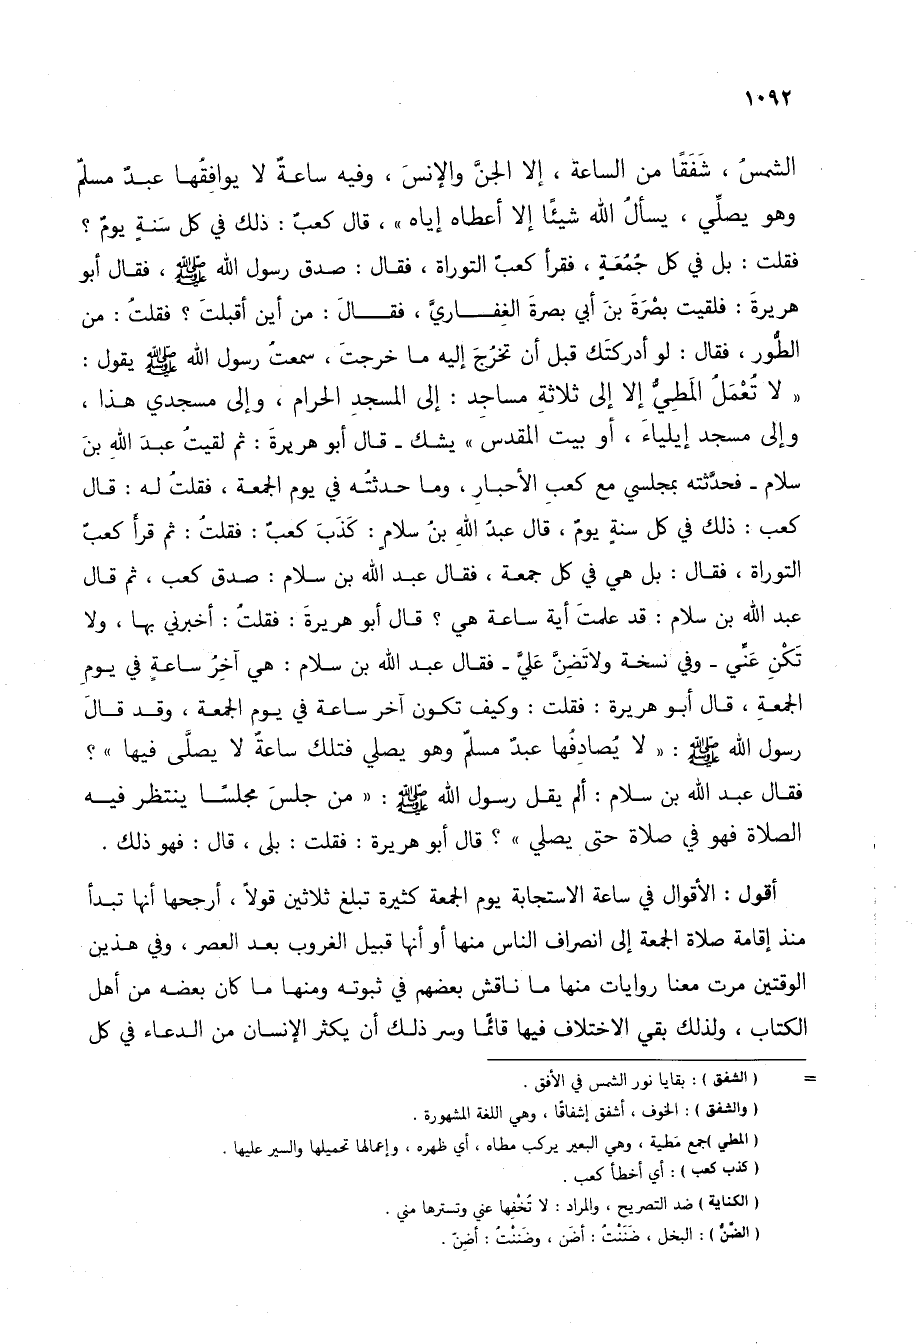 ١٠٩٢
الشمسُ ، شَفَقًا من الساعة ، إلا الجنَّ والإنسَ ، وفيه ساعةٌ لا يوافِقُها عبدٌ مسلمٌ
وهو يصلِّي ، يسألُ الله شيئًا إلا أعطاه إياه » ، قال كعبٌ : ذلك في كل سَنةٍ يومٌ ؟
فقلت : بل في كل جُمُعَةٍ ، فقرأ كعبٌ التوراة ، فقال : صدق رسول الله ﷺ ، فقال أبو
هريرةَ : فلقيت بصْرَةَ بنَ أبي بصرةَ الغِفاريَّ ، فقالَ : من أين أقبلتَ ؟ فقلتُ : من
الطُّور ، فقال : لو أدركتَك قبل أن تخرُجَ إليه ما خرجتَ ، سمعتُ رسول الله ﷺ يقول :
« لا تُعْمَلُ المَطيُّ إلا إلى ثلاثةِ مساجد : إلى المسجدِ الحرام ، وإلى مسجدي هذا ،
وإلى مسجد إيلياءَ ، أو بيت المقدس » يشك ـ قال أبو هريرةَ : ثم لقيتُ عبدَ الله بنَ
سلام ـ فحدَّثته بمجلسي مع كعبِ الأحبارِ ، وما حدثتُه في يوم الجمعة ، فقلتُ له : قال
كعب : ذلك في كل سنةٍ يومٌ ، قال عبدُ اللهِ بنُ سلامٍ : كَذَبَ كعبٌ : فقلتُ : ثم قرأَ كعبٌ
التوراة ، فقال : بل هي في كل جمعة ، فقال عبد الله بن سلام : صدق كعب ، ثم قال
عبد الله بن سلام : قد علمتَ أية ساعة هي ؟ قال أبو هريرةَ : فقلتُ : أخبرني بها ، ولا
تَكْنِ عَنِّي ـ وفي نسخة ولاتَضِنَّ عَليَّ ـ فقال عبد الله بن سلام : هي آخِرُ ساعةٍ في يومِ
الجمعةِ ، قال أبو هريرة : فقلت : وكيف تكون آخر ساعة في يوم الجمعة ، وقد قالَ
رسول الله ﷺ : « لا يُصادِفُها عبدٌ مسلمٌ وهو يصلي فتلك ساعةٌ لا يصلَّى فيها » ؟
فقال عبد الله بن سلام : ألم يقل رسول الله ﷺ : « من جلسَ مجلسًا ينتظر فيه
الصلاة فهو في صلاة حتى يصلي » ؟ قال أبو هريرة : فقلت : بلى ، قال : فهو ذلك .
أقول : الأقوال في ساعة الاستجابة يوم الجمعة كثيرة تبلغ ثلاثين قولاً ، أرجحها أنها تبدأ
منذ إقامة صلاة الجمعة إلى انصراف الناس منها أو أنها قبيل الغروب بعد العصر ، وفي هذين
الوقتين مرت معنا روايات منها ما ناقش بعضهم في ثبوته ومنها ما كان بعضه من أهل
الكتاب ، ولذلك بقي الاختلاف فيها قائمًا وسر ذلك أن يكثر الإنسان من الدعاء في كل
= ( الشفق ) : بقايا نور الشمس في الأفق .
( والشفق ) : الخوف ، أشفق إشفاقًا ، وهي اللغة المشهورة .
( المطي )جمع مَطية ، وهي البعير يركب مطاه ، أي ظهره ، وإعمالها تحميلها والسير عليها .
( كذب كعب ) : أي أخطأ كعب .
( الكناية ) ضد التصريح ، والمراد : لا تُخْفِها عني وتسترها مني .
( الضِّنُّ ) : البخل ، ضَنَنْتُ : أضَن ، وضَنَنْتُ : أضِنّ .